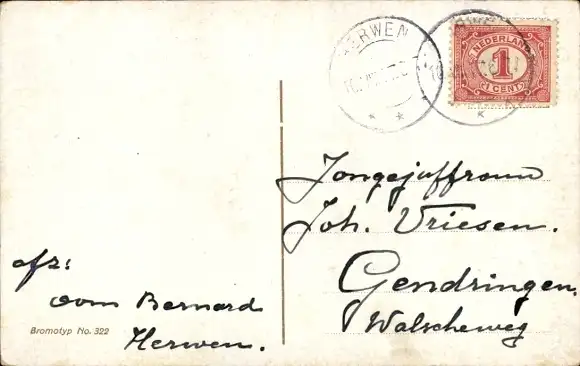 HERWEN
NEDERLAND
1
CENT
Jongejuffrouw
Joh. Vriesen.
Gendringen.
Walscheweg
afz:
oom Bernard
Herwen.
Bromotyp No. 322